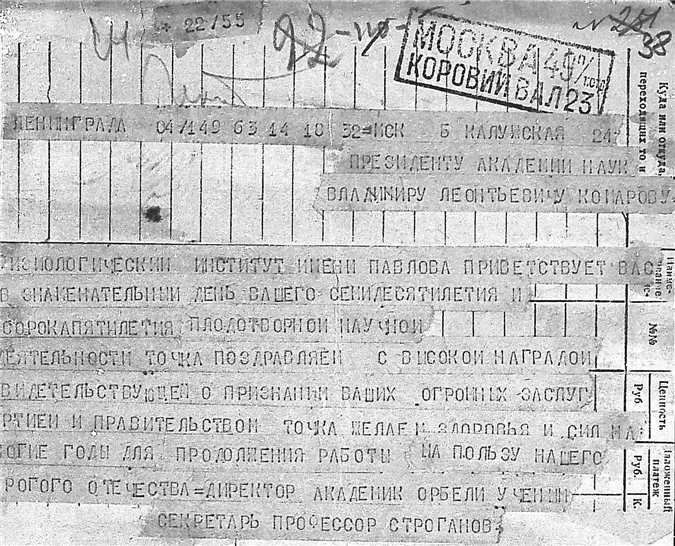 22/55
№ 281
38
МОСКВА 49 П/
КОРОВИЙ ВАЛ 23
Куда или откуда,
ЛЕНИНГРАДА 04/149 63 14 18 32=МСК Б КАЛУЖСКАЯ 24=
ПРЕЗИДЕНТУ АКАДЕМИИ НАУК
ВЛАДИМИРУ ЛЕОНТЬЕВИЧУ КОМАРОВУ=
ФИЗИОЛОГИЧЕСКИЙ ИНСТИТУТ ИМЕНИ ПАВЛОВА ПРИВЕТСТВУЕТ ВАС
В ЗНАМЕНАТЕЛЬНЫЙ ДЕНЬ ВАШЕГО СЕМИДЕСЯТИЛЕТИЯ И
СОРОКАПЯТИЛЕТИЯ ПЛОДОТВОРНОЙ НАУЧНОЙ
ДЕЯТЕЛЬНОСТИ ТОЧКА ПОЗДРАВЛЯЕМ С ВЫСОКОЙ НАГРАДОЙ
СВИДЕТЕЛЬСТВУЮЩЕЙ О ПРИЗНАНИИ ВАШИХ ОГРОМНЫХ ЗАСЛУГ
ПАРТИЕЙ И ПРАВИТЕЛЬСТВОМ ТОЧКА ЖЕЛАЕМ ЗДОРОВЬЯ И СИЛ НА
МНОГИЕ ГОДЫ ДЛЯ ПРОДОЛЖЕНИЯ РАБОТЫ НА ПОЛЬЗУ НАШЕГО
ДОРОГОГО ОТЕЧЕСТВА=ДИРЕКТОР АКАДЕМИК ОРБЕЛИ УЧЕНЫЙ
СЕКРЕТАРЬ ПРОФЕССОР СТРОГАНОВ
№№
Ценность
Руб
Наложенный
платеж
Руб. К.